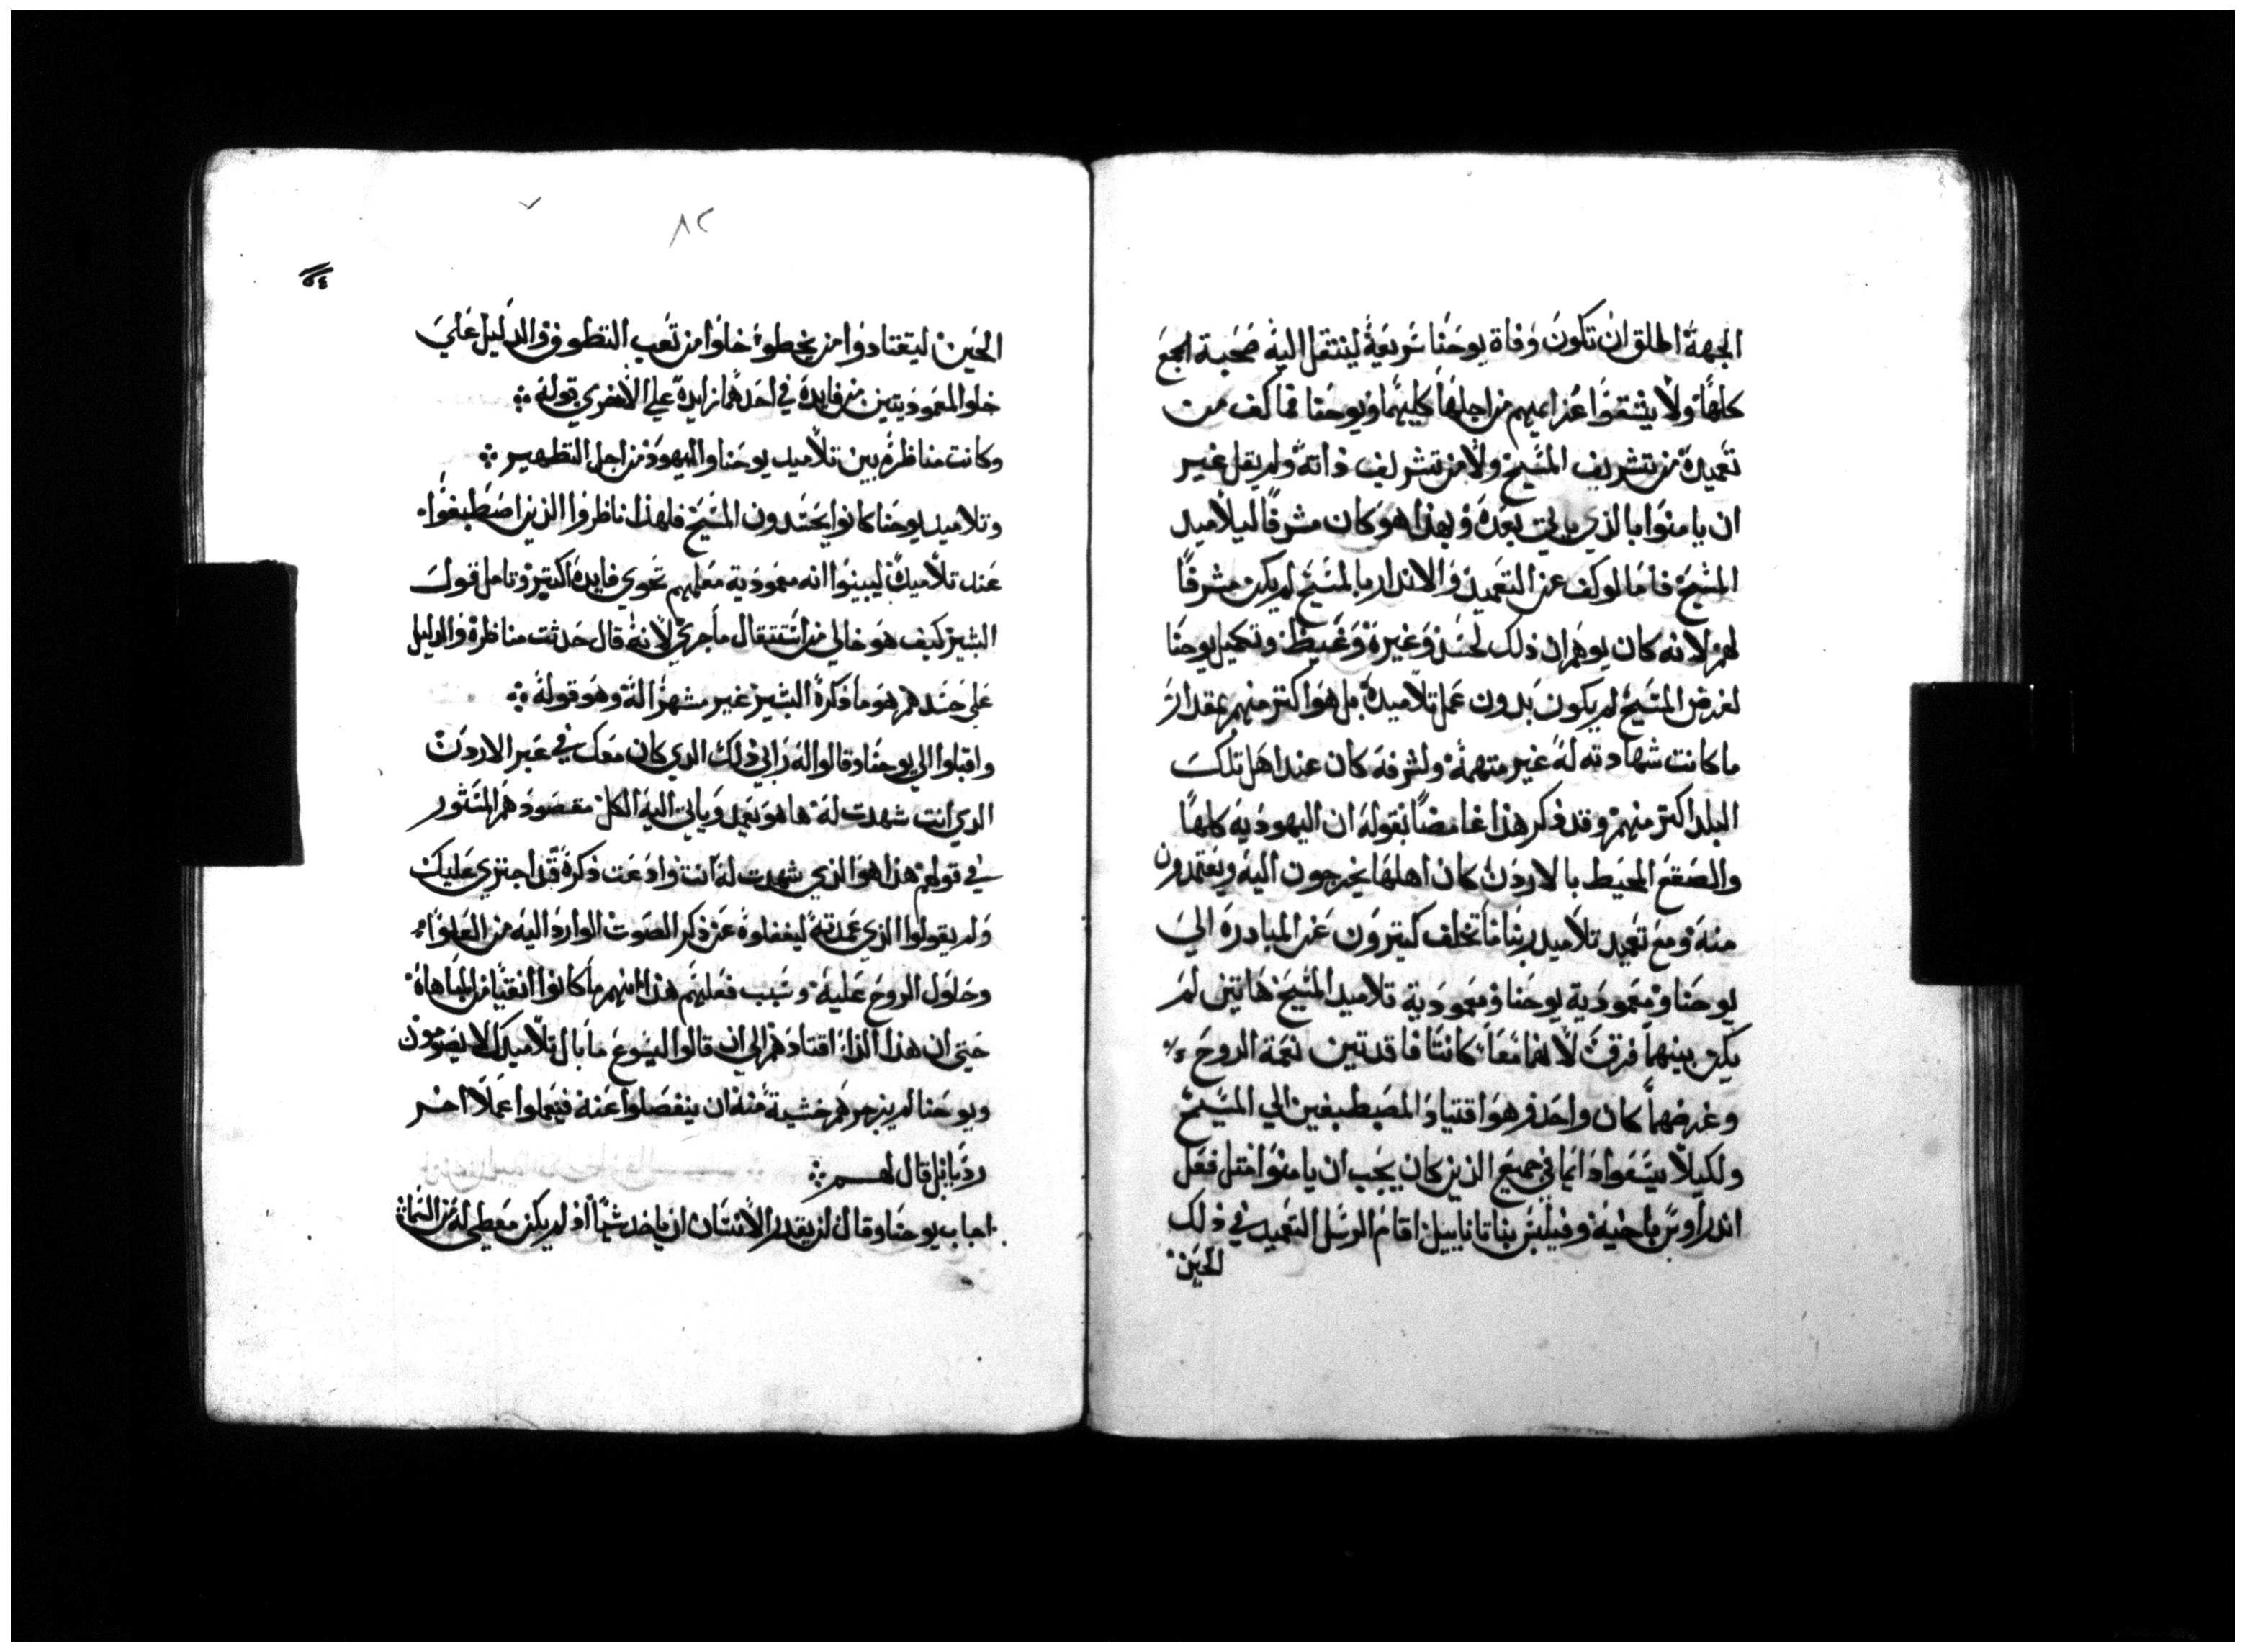 الجهة اطلق ان تكون وفاة يوحنا سريعة لينتقل اليه صحبة الجمع
كلها ولا ينشقوا عزايمهم من اجلها كليهما ويوحنا فما كف من
تعميده من تشريف المسيح ولا من تشريف ذاته ولم يقل غير
ان يامنوا بالذي ياتي بعده وبهذا هو كان مشرفا ليلاميد
المسيح فاما لو كف عن التعميد والاندار بالمسيح لم يكن مشرفا
لهم لانه كان يوهم ان ذلك لحسد وغيرة وغيظ وتكميل يوحنا
لغرض المسيح لم يكون بدون عمل تلاميده بل هو اكتر منهم بمقدار
ما كانت شهادته له غير متهمة ولشرفه كان عند اهل تلك
البلد اكتر منهم وقد ذكر هذا غامضا بقوله ان اليهودية كلها
والصقع المحيط بالاردن كان اهلها يخرجون اليه ويعتمدون
منه ومع تعميد تلاميد ربنا ما تخلف كتيرون عن المبادرة الي
يوحنا ومعمودية يوحنا ومعمودية تلاميد المسيح هاتين لم
يكن بينهما فرق لانهما معا كانتا فاقدتين نعمة الروح
وغرضهما كان واحد وهو اقتياد المصطبغين الي المسيح
ولكيلا يسعوا دايما في جميع الذين كان يجب ان يامنوا متل فعل
اندراوس باخيه وفيلبس بناتاناييل اقام الرسل التعميد في ذلك
الحين
٨٢
٥٤
الحين ليقتادوا من يخطوه خلوا من تعب التطوف والدليل علي
خلو المعموديتين من فايدة في احدهما زايدة علي الاخري قوله
وكانت مناظرة بين تلاميد يوحنا واليهود من اجل التطهير
وتلاميد يوحنا كانوا يحسدون المسيح فلهذا ناظروا الذين اصطبغوا
عند تلاميده ليبينوا انه معمودية معلمهم تحوي فايدة اكتر وتامل قول
البشير كيف هو خالي من استتقال ما جري لانه قال حدثت مناظرة والدليل
علي حسدهم هو ما ذكره البشير غير مشهرا له وهو قوله
واقبلوا الي يوحنا وقالوا له رابي ذلك الدي كان معك في عبر الاردن
الدي انت شهدت له ها هو يعمد وياتي اليه الكل مقصودهم المستور
في قولهم هذا هو الذي شهدت له انت واذعت ذكره قد اجتري عليك
ولم يقولوا الذي عمدته ليغفلوه عن ذكر الصوت الوارد اليه من العلو
وحلول الروح عليه وسبب فعلهم هذا انهم ما كانوا انقيا من المباهاة
حتي ان هذا الدا اقتادهم الي ان قالوا ليسوع ما بال تلاميدك لا يصومون
ويوحنا لم يزجرهم خشية منه ان ينفصلوا عنه فيعملوا عملا اخر
رديا بل قال لهم
اجاب يوحنا وقال لن يقدر الانسان ان ياخد شيا او لم يكن معطي له من السما